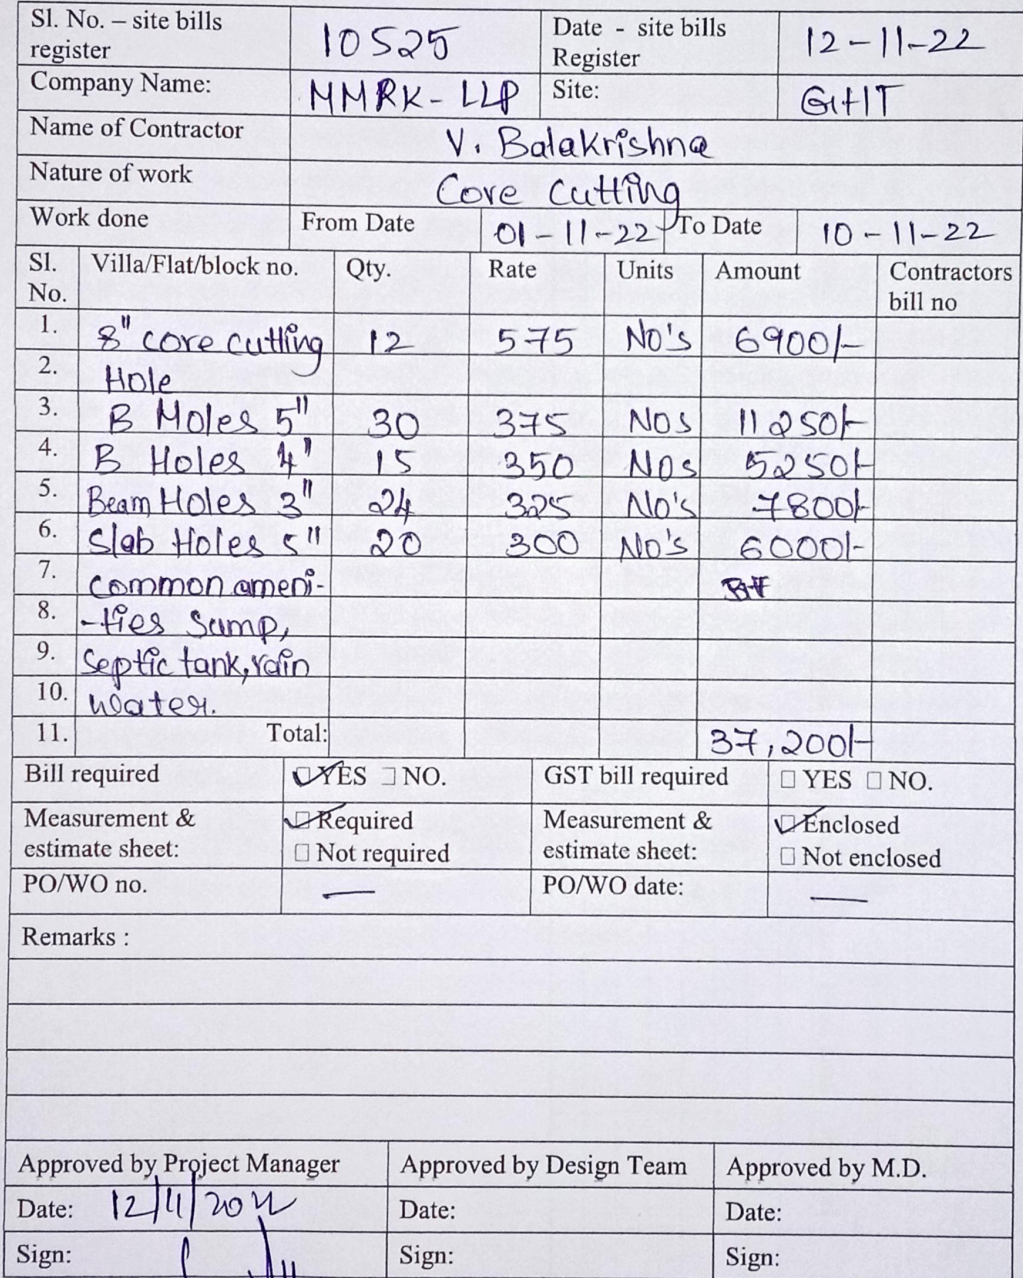 Sl. No. – site bills register 10525 Date - site bills Register 12-11-22
Company Name: MMRK-LLP Site: GHIT
Name of Contractor V. Balakrishna
Nature of work Core Cutting
Work done From Date 01-11-22 To Date 10-11-22
Sl. No. Villa/Flat/block no. Qty. Rate Units Amount Contractors bill no
1. 8" core cutting 12 575 No's 6900/-
2. Hole
3. B Holes 5" 30 375 Nos 11250/-
4. B Holes 4" 15 350 Nos 5250/-
5. Beam Holes 3" 24 325 No's 7800/-
6. Slab Holes 5" 20 300 No's 6000/-
7. common ameni-
8. -ties sump,
9. Septic tank, rain
10. water.
11. Total: 37,200/-
Bill required ☑ YES ☐ NO. GST bill required ☐ YES ☐ NO.
Measurement & estimate sheet: ☑ Required ☐ Not required Measurement & estimate sheet: ☑ Enclosed ☐ Not enclosed
PO/WO no. — PO/WO date: —
Remarks :
Approved by Project Manager Approved by Design Team Approved by M.D.
Date: 12/11/2022 Date: Date:
Sign: Sign: Sign: